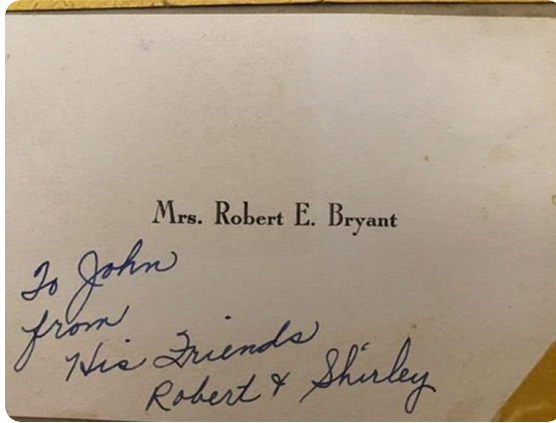 Mrs. Robert E. Bryant
To John
from
His Friends
Robert & Shirley